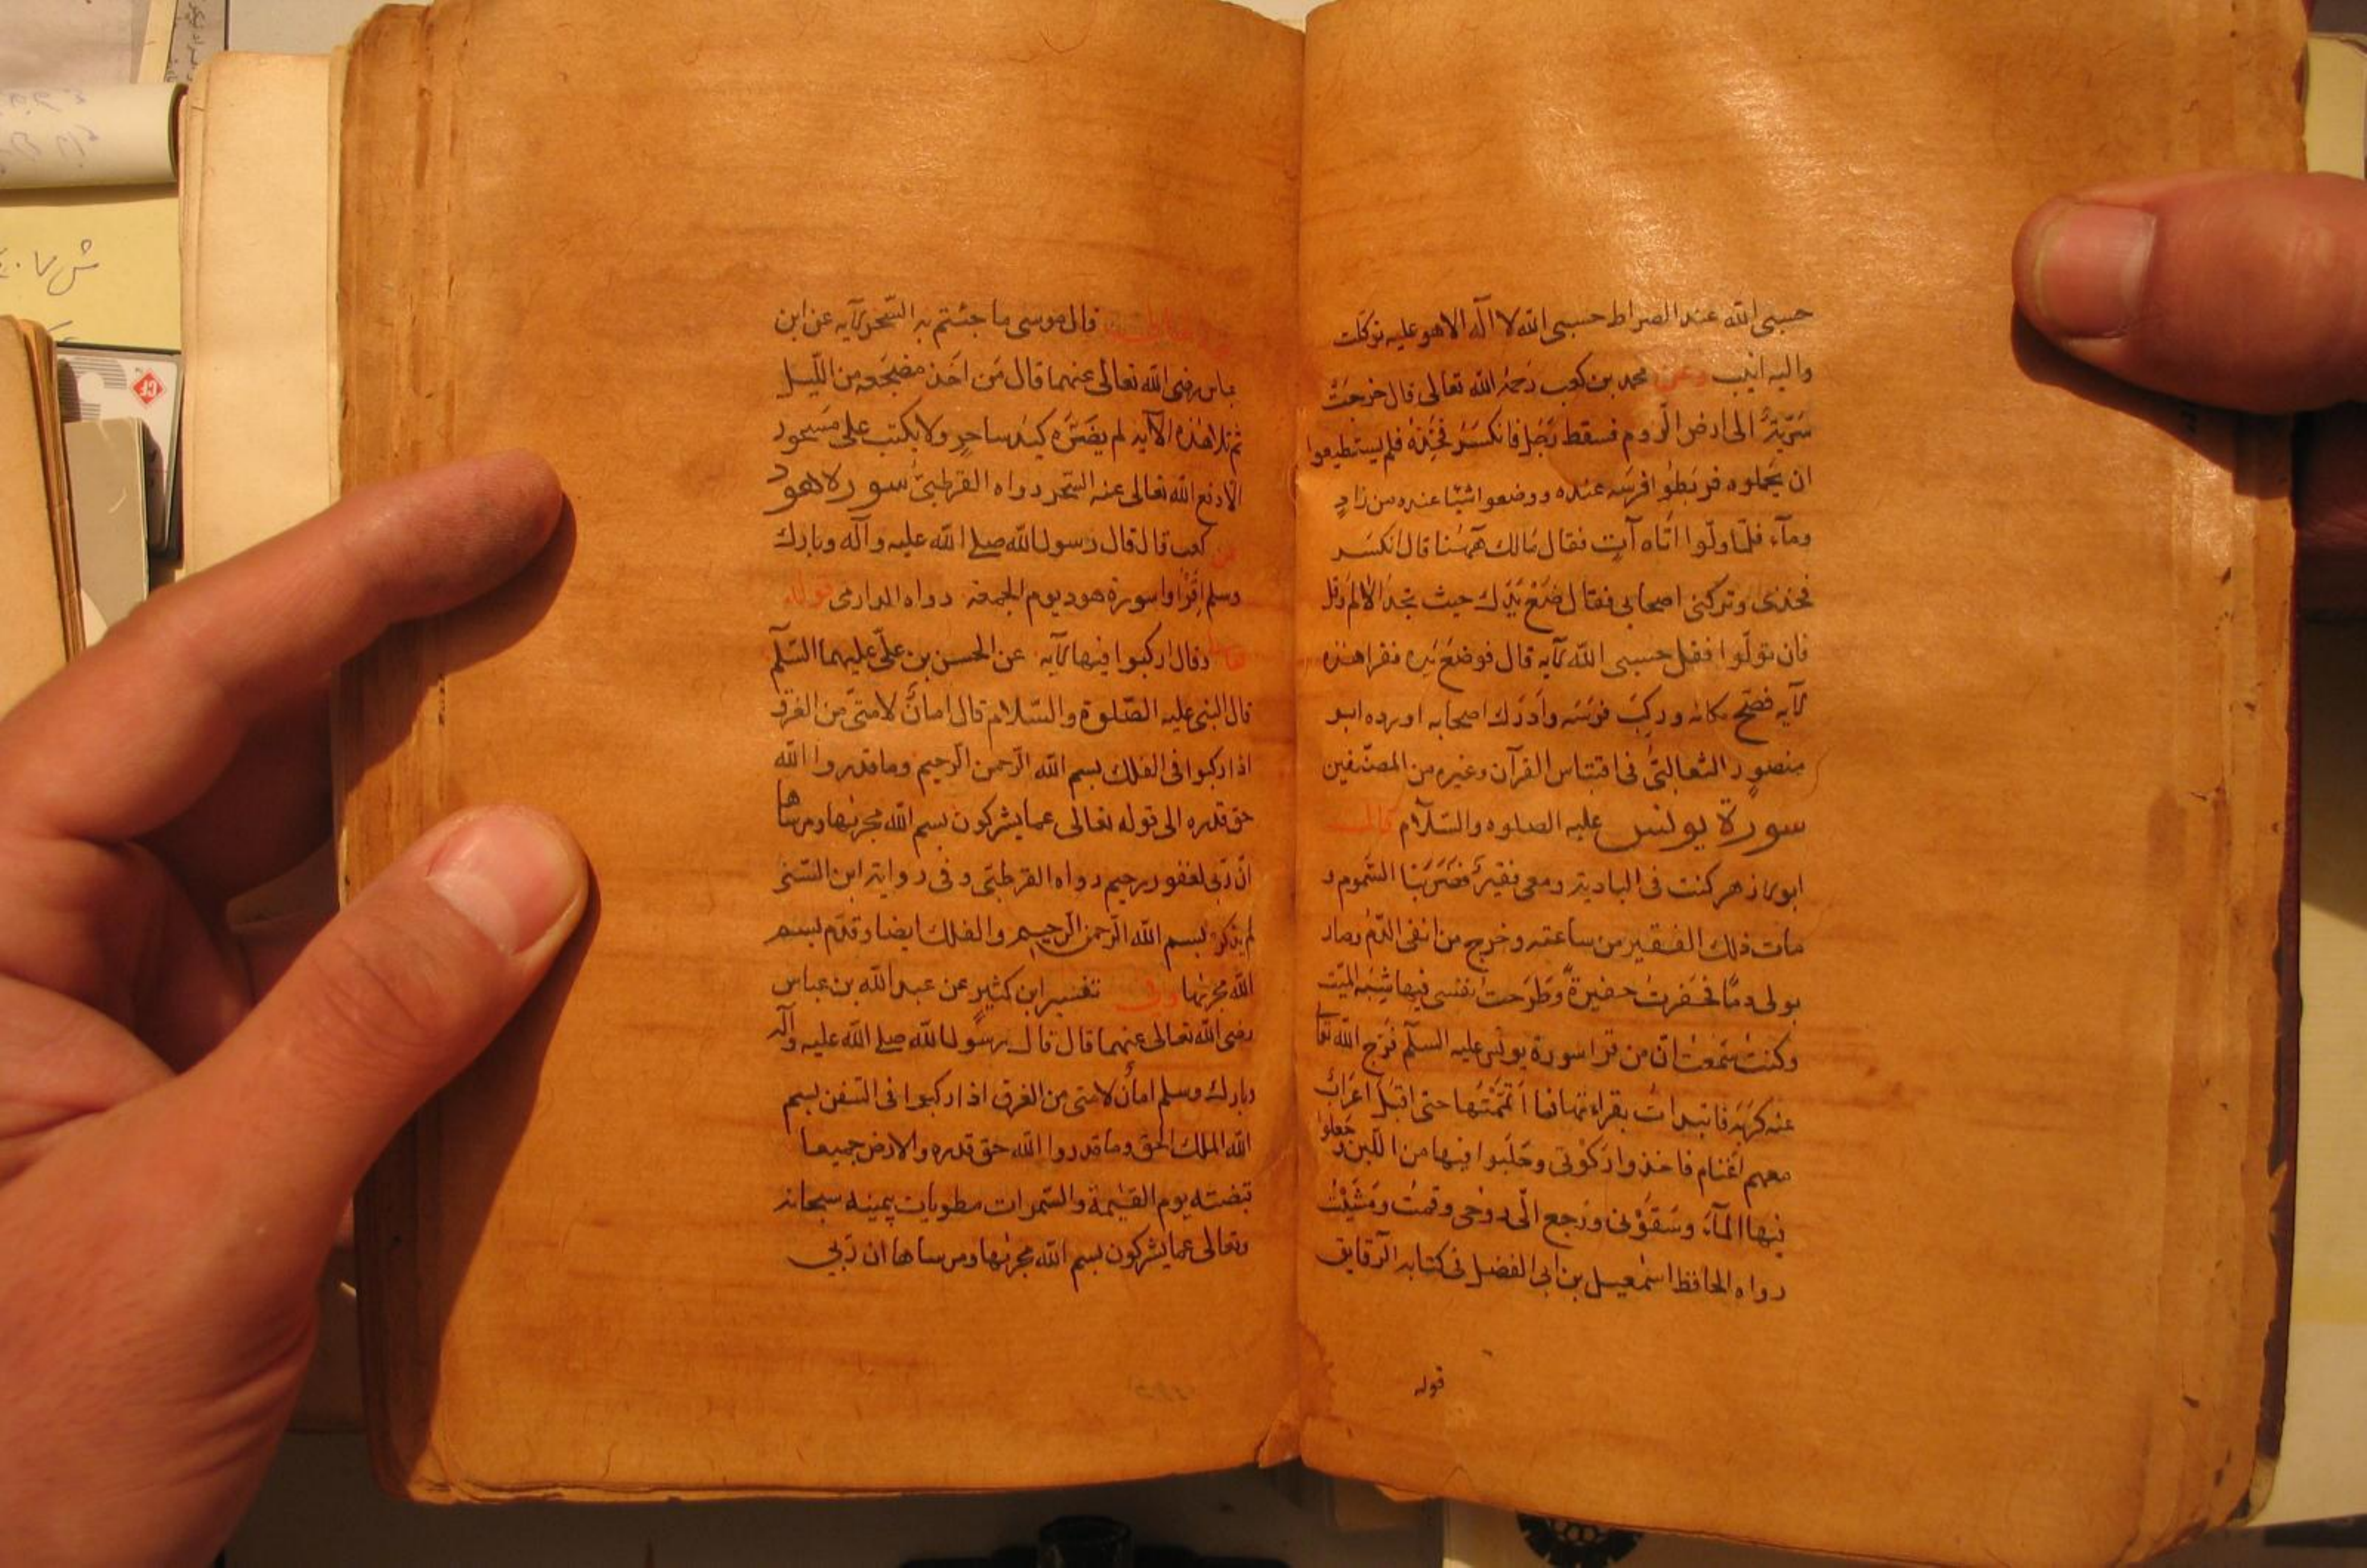 حسبى الله عند الصراط حسبى الله لا اله الا هو عليه توكلت
واليه انيب وعن محمد بن كعب رحمه الله تعالى قال خرجت
سرية الى ارض الروم فسقط رجل فانكسر فخذه فلم يستطيعوا
ان يحملوه فربطوا فرسه عنده ووضعوا شيئا عنده من زاد
وماء فلما ولوا اتاه آت فقال مالك ههنا قال انكسر
فخذى وتركنى اصحابى فقال ضع يدك حيث تجد الالم وقل
فان تولوا فقل حسبى الله الآيه قال فوضع يده فقرا هذه
الآيه فصح مكانه وركب فرسه وادرك اصحابه اورده ابو
منصور الثعالبى فى اقتباس القرآن وغيره من المصنفين
سورة يونس عليه الصلوه والسلام قال
ابو ذر هر كنت فى البادية ومعى فقير فضربنا السموم و
مات ذلك الفقير من ساعته وخرج من انفى الدم وصار
بولى دما فحفرت حفيرة وطرحت نفسى فيها شبه الميت
وكنت سمعت ان من قرا سورة يونس عليه السلم فرج الله تعا
عنه كربه فابتدات بقراءتها فما اتممتها حتى اقبل اعراب
معهم اغنام فاخذوا ركوتى وحلبوا فيها من اللبن وجعلوا
فيها الماء وسقونى ورجع الى روحى وقمت ومشيت
رواه الحافظ اسمعيل بن ابى الفضل فى كتابه الرقايق
قوله
قال موسى ما جئتم به السحر الآيه عن ابن
عباس رضى الله تعالى عنهما قال من اخذ مضجعه من الليل
ثم تلا هذه الآيه لم يضره كيد ساحر ولا يكتب على مسحور
الا دفع الله تعالى عنه السحر رواه القرطبى سورة هود
عن كعب قال قال رسول الله صلى الله عليه وآله وبارك
وسلم اقراوا سورة هود يوم الجمعة رواه الدارمى قوله
تعالى وقال اركبوا فيها الآيه عن الحسن بن على عليهما السلم
قال النبى عليه الصلوة والسلام قال امان لامتى من الغرق
اذا ركبوا فى الفلك بسم الله الرحمن الرحيم وما قدروا الله
حق قدره الى قوله تعالى عما يشركون بسم الله مجريها ومرساها
ان ربى لغفور رحيم رواه القرطبى وفى رواية ابن السنى
لم يذكر بسم الله الرحمن الرحيم والفلك ايضا وقدم بسم
الله مجريها وفى تفسير ابن كثير عن عبد الله بن عباس
رضى الله تعالى عنهما قال قال رسول الله صلى الله عليه وآله
وبارك وسلم امان لامتى من الغرق اذا ركبوا فى السفن بسم
الله الملك الحق وما قدروا الله حق قدره والارض جميعا
قبضته يوم القيمة والسموات مطويات بيمينه سبحانه
وتعالى عما يشركون بسم الله مجريها ومرساها ان ربى